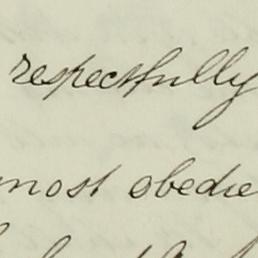 respectfully
most obedie